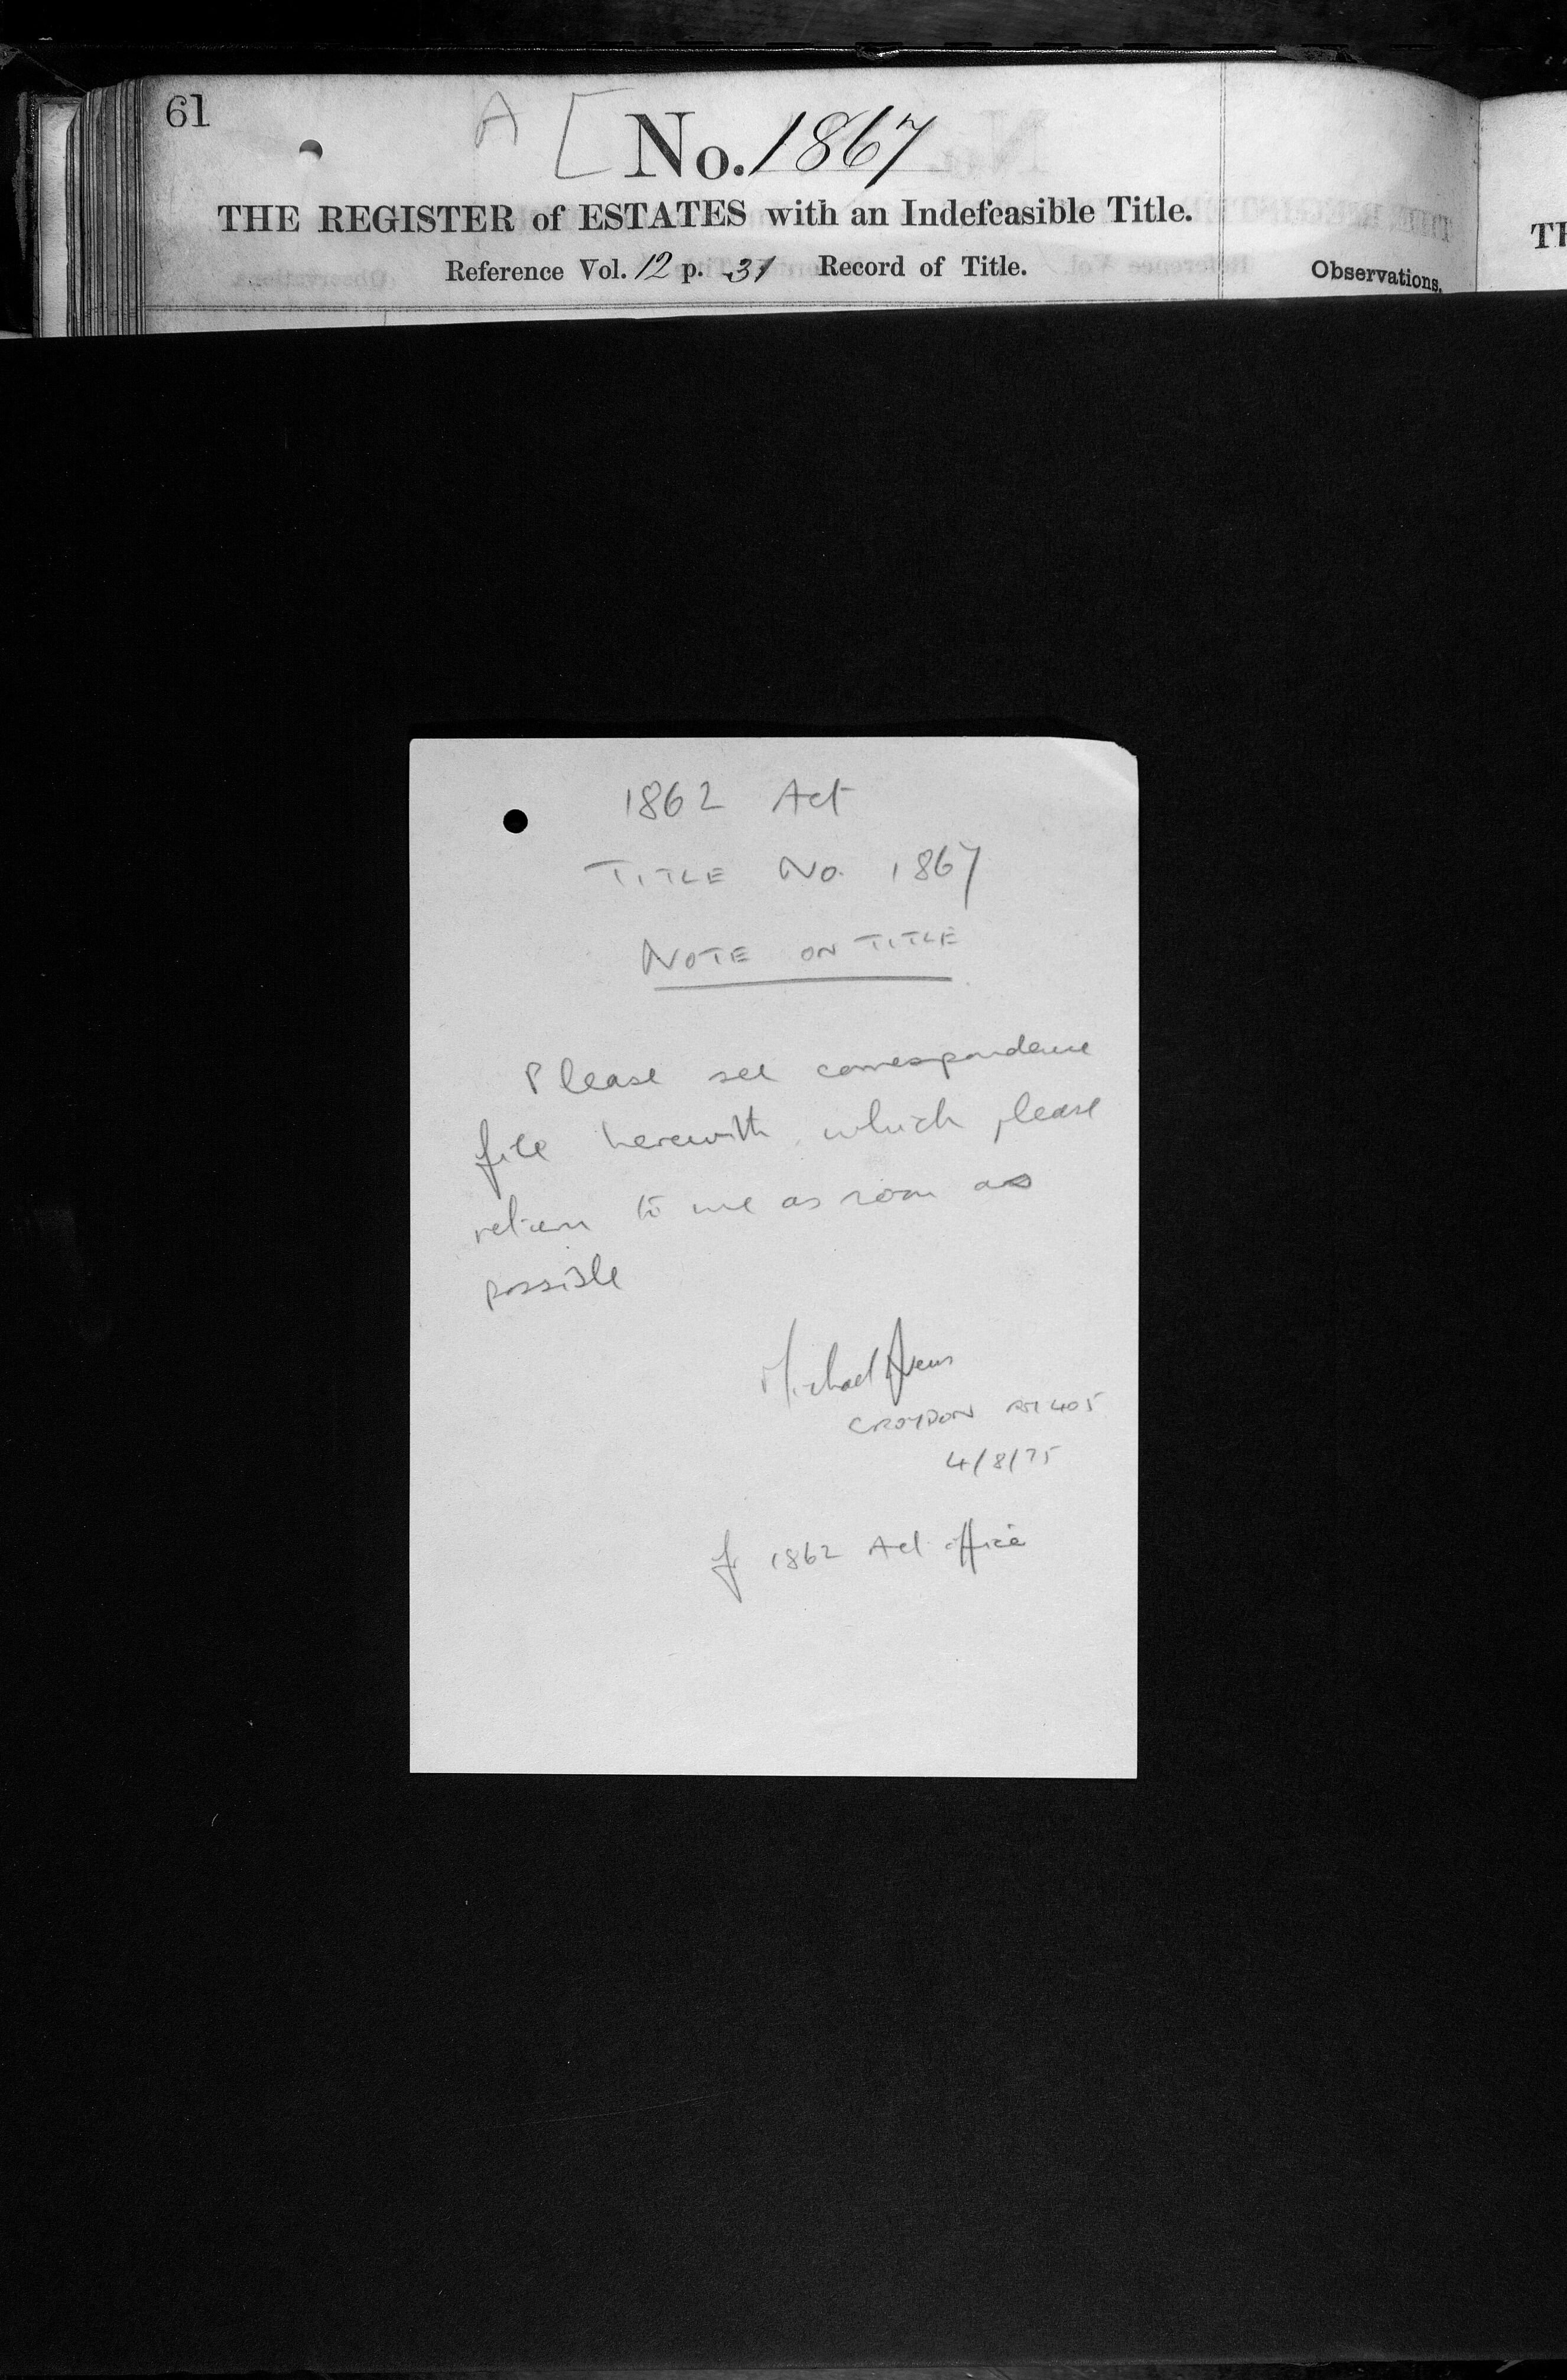 61
A [ No. 1867
THE REGISTER of ESTATES with an Indefeasible Title.
Reference Vol. 12 p. 31 Record of Title.
Observations.
TH
1862 Act
TITLE No. 1867
NOTE ON TITLE
Please see correspondence
file herewith which please
return to me as soon as
possible
Michael
CROYDON 405
4/8/75
1862 Act office